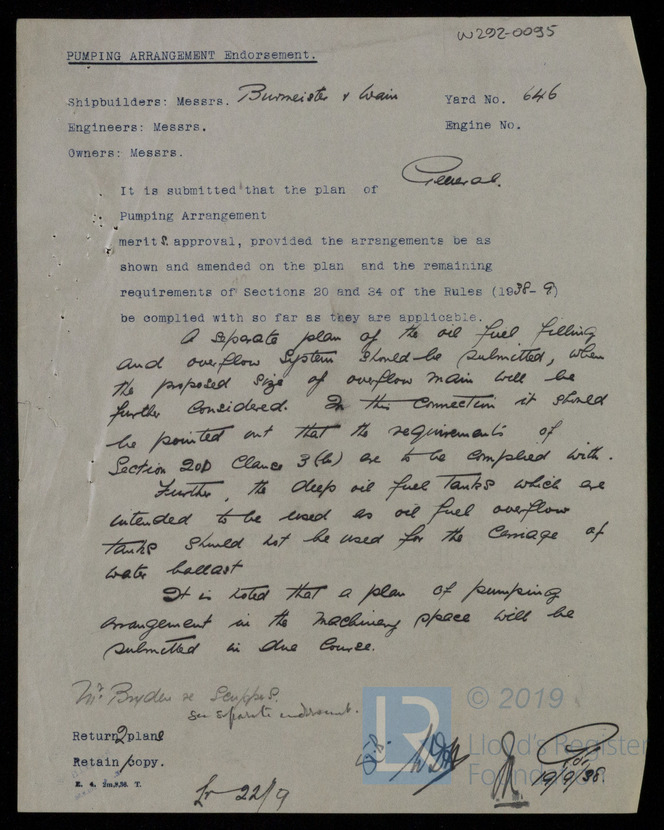 W292-0095
PUMPING ARRANGEMENT Endorsement.
Shipbuilders: Messrs. Burmeister & Wain Yard No. 646
Engineers: Messrs. Engine No.
Owners: Messrs.
General.
It is submitted that the plan of
Pumping Arrangement
merits approval, provided the arrangements be as
shown and amended on the plan and the remaining
requirements of Sections 20 and 34 of the Rules (1938-9)
be complied with so far as they are applicable.
A separate plan of the oil fuel filling
and overflow System should be submitted, when
the proposed size of overflow main will be
further considered. In this connection it should
be pointed out that the requirements of
Section 20D Clause 3(b) are to be complied with.
Further, the deep oil fuel tanks which are
intended to be used as oil fuel overflow
tanks should not be used for the carriage of
water ballast
It is noted that a plan of pumping
arrangement in the machinery space will be
submitted in due course.
Mr Bryden re Scuppers.
see separate endorsement.
© 2019
Return 2 plans
Lloyd's Register
Retain 1 copy.
Foundation
19/9/38.
E. 4. 2m,9,38. T.
Lr 22/9